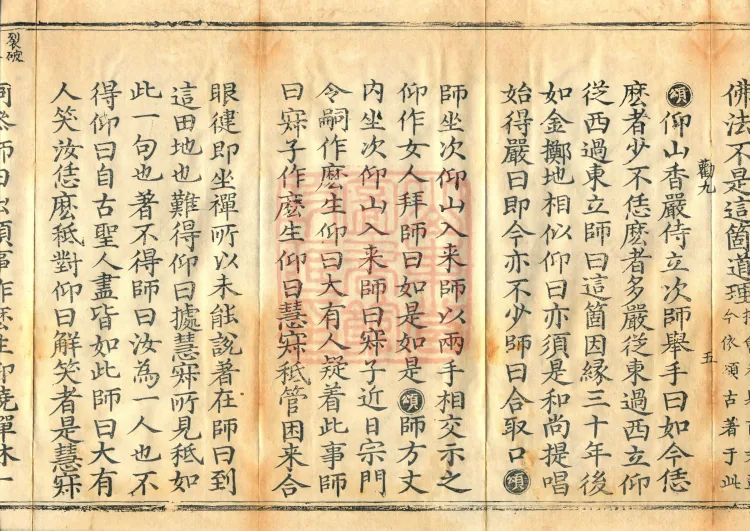 佛法不是這箇道理
今依頌古著于此
勸九
五
頌仰山香嚴侍立次師舉手曰如今恁
麽者少不恁麽者多嚴従東過西立仰
従西過東立師曰這箇因縁三十年後
如金擲地相似仰曰亦須是和尚提唱
始得嚴曰即今亦不少師曰合取口頌
師坐次仰山入来師以兩手相交示之
仰作女人拜師曰如是如是頌師方丈
内坐次仰山入来師曰寐子近日宗門
令嗣作麽生仰曰大有人疑着此事師
曰寐子作麽生仰曰慧寐秪管困来合
眼健即坐禪所以未能説著在師曰到
這田地也難得仰曰據慧寐所見秪如
此一句也著不得師曰汝為一人也不
得仰曰自古聖人盡皆如此師曰大有
人笑汝恁麽秪對仰曰解笑者是慧寐
裂破